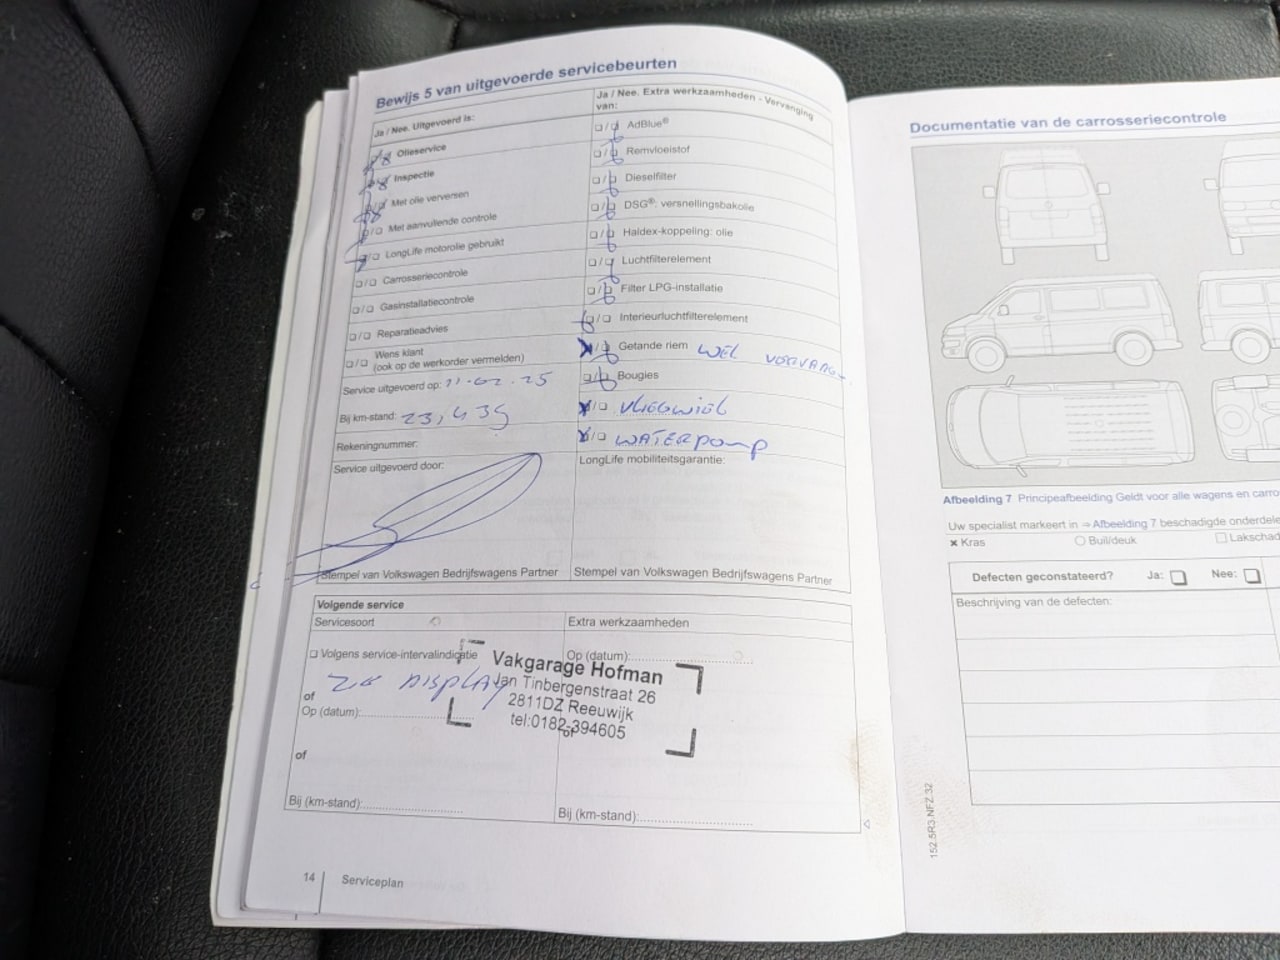 Bewijs 5 van uitgevoerde servicebeurten
Ja / Nee. Uitgevoerd is:
Olieservice
Inspectie
Met olie verversen
Met aanvullende controle
LongLife motorolie gebruikt
Carrosseriecontrole
Gasinstallatiecontrole
Reparatieadvies
Wens klant
(ook op de werkorder vermelden)
Service uitgevoerd op: 11-02-25
Bij km-stand: 23,435
Rekeningnummer:
Service uitgevoerd door:
Stempel van Volkswagen Bedrijfswagens Partner
Ja / Nee. Extra werkzaamheden - Vervanging
van:
AdBlue®
Remvloeistof
Dieselfilter
DSG®: versnellingsbakolie
Haldex-koppeling: olie
Luchtfilterelement
Filter LPG-installatie
Interieurluchtfilterelement
Getande riem WEL
Bougies
VLIEGWIEL
WATERPOMP
LongLife mobiliteitsgarantie:
Stempel van Volkswagen Bedrijfswagens Partner
Volgende service
Servicesoort
Volgens service-intervalindicatie
of
DISPLAY
Op (datum):
of
Bij (km-stand):
Extra werkzaamheden
Op (datum):
of
Bij (km-stand):
Vakgarage Hofman
Jan Tinbergenstraat 26
2811DZ Reeuwijk
tel:0182-394605
14 Serviceplan
Documentatie van de carrosseriecontrole
Afbeelding 7 Principeafbeelding Geldt voor alle wagens en carro
Uw specialist markeert in ⇒ Afbeelding 7 beschadigde onderdele
× Kras
Buil/deuk
Lakschad
Defecten geconstateerd? Ja: Nee:
Beschrijving van de defecten:
152.5R3.NFZ.32